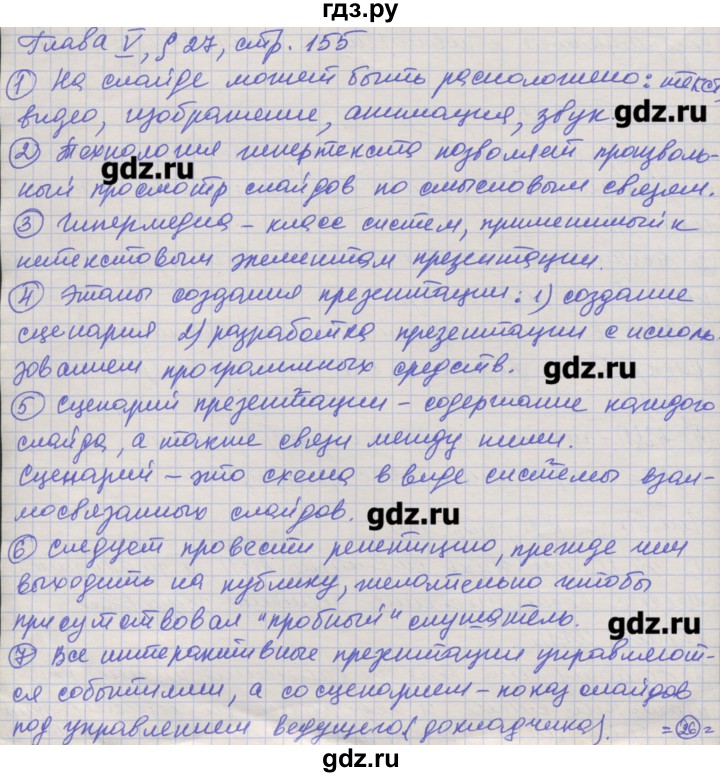 гдз.ру
Глава V, § 27, стр. 155
① На слайде может быть расположено: текст
видео, изображение, анимация, звук. gdz.ru
② Технология гипертекста позволяет произволь-
gdz.ru
ный просмотр слайдов по смысловым связям.
③ Гипермедиа – класс систем, применимый к
нетекстовым элементам презентации.
④ Этапы создания презентации: 1) создание
сценария 2) разработка презентации с исполь-
зованием программных средств. gdz.ru
⑤ Сценарий презентации – содержание каждого
слайда, а также связи между ними.
Сценарий – это схема в виде системы взаи-
мосвязанных слайдов. gdz.ru
⑥ Следует провести репетицию, прежде чем
выходить на публику, желательно чтобы
присутствовал "пробный" слушатель. gdz.ru
⑦ Все интерактивные презентации управляют-
ся событиями, а со сценарием – показ слайдов
под управлением ведущего (докладчика). = 26 =
gdz.ru